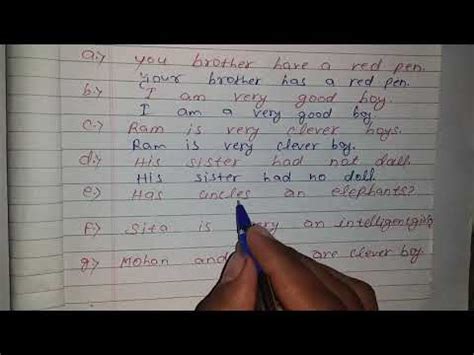 a.) you brother have a red pen.
Your brother has a red pen.
b.) I am very good boy.
I am a very good boy.
c.) Ram is very clever boys.
Ram is very clever boy.
d.) His sister had not doll.
His sister had no doll.
e.) Has uncles an elephants?
f.) Sita is an intelligent girl
g.) Mohan and are clever boy